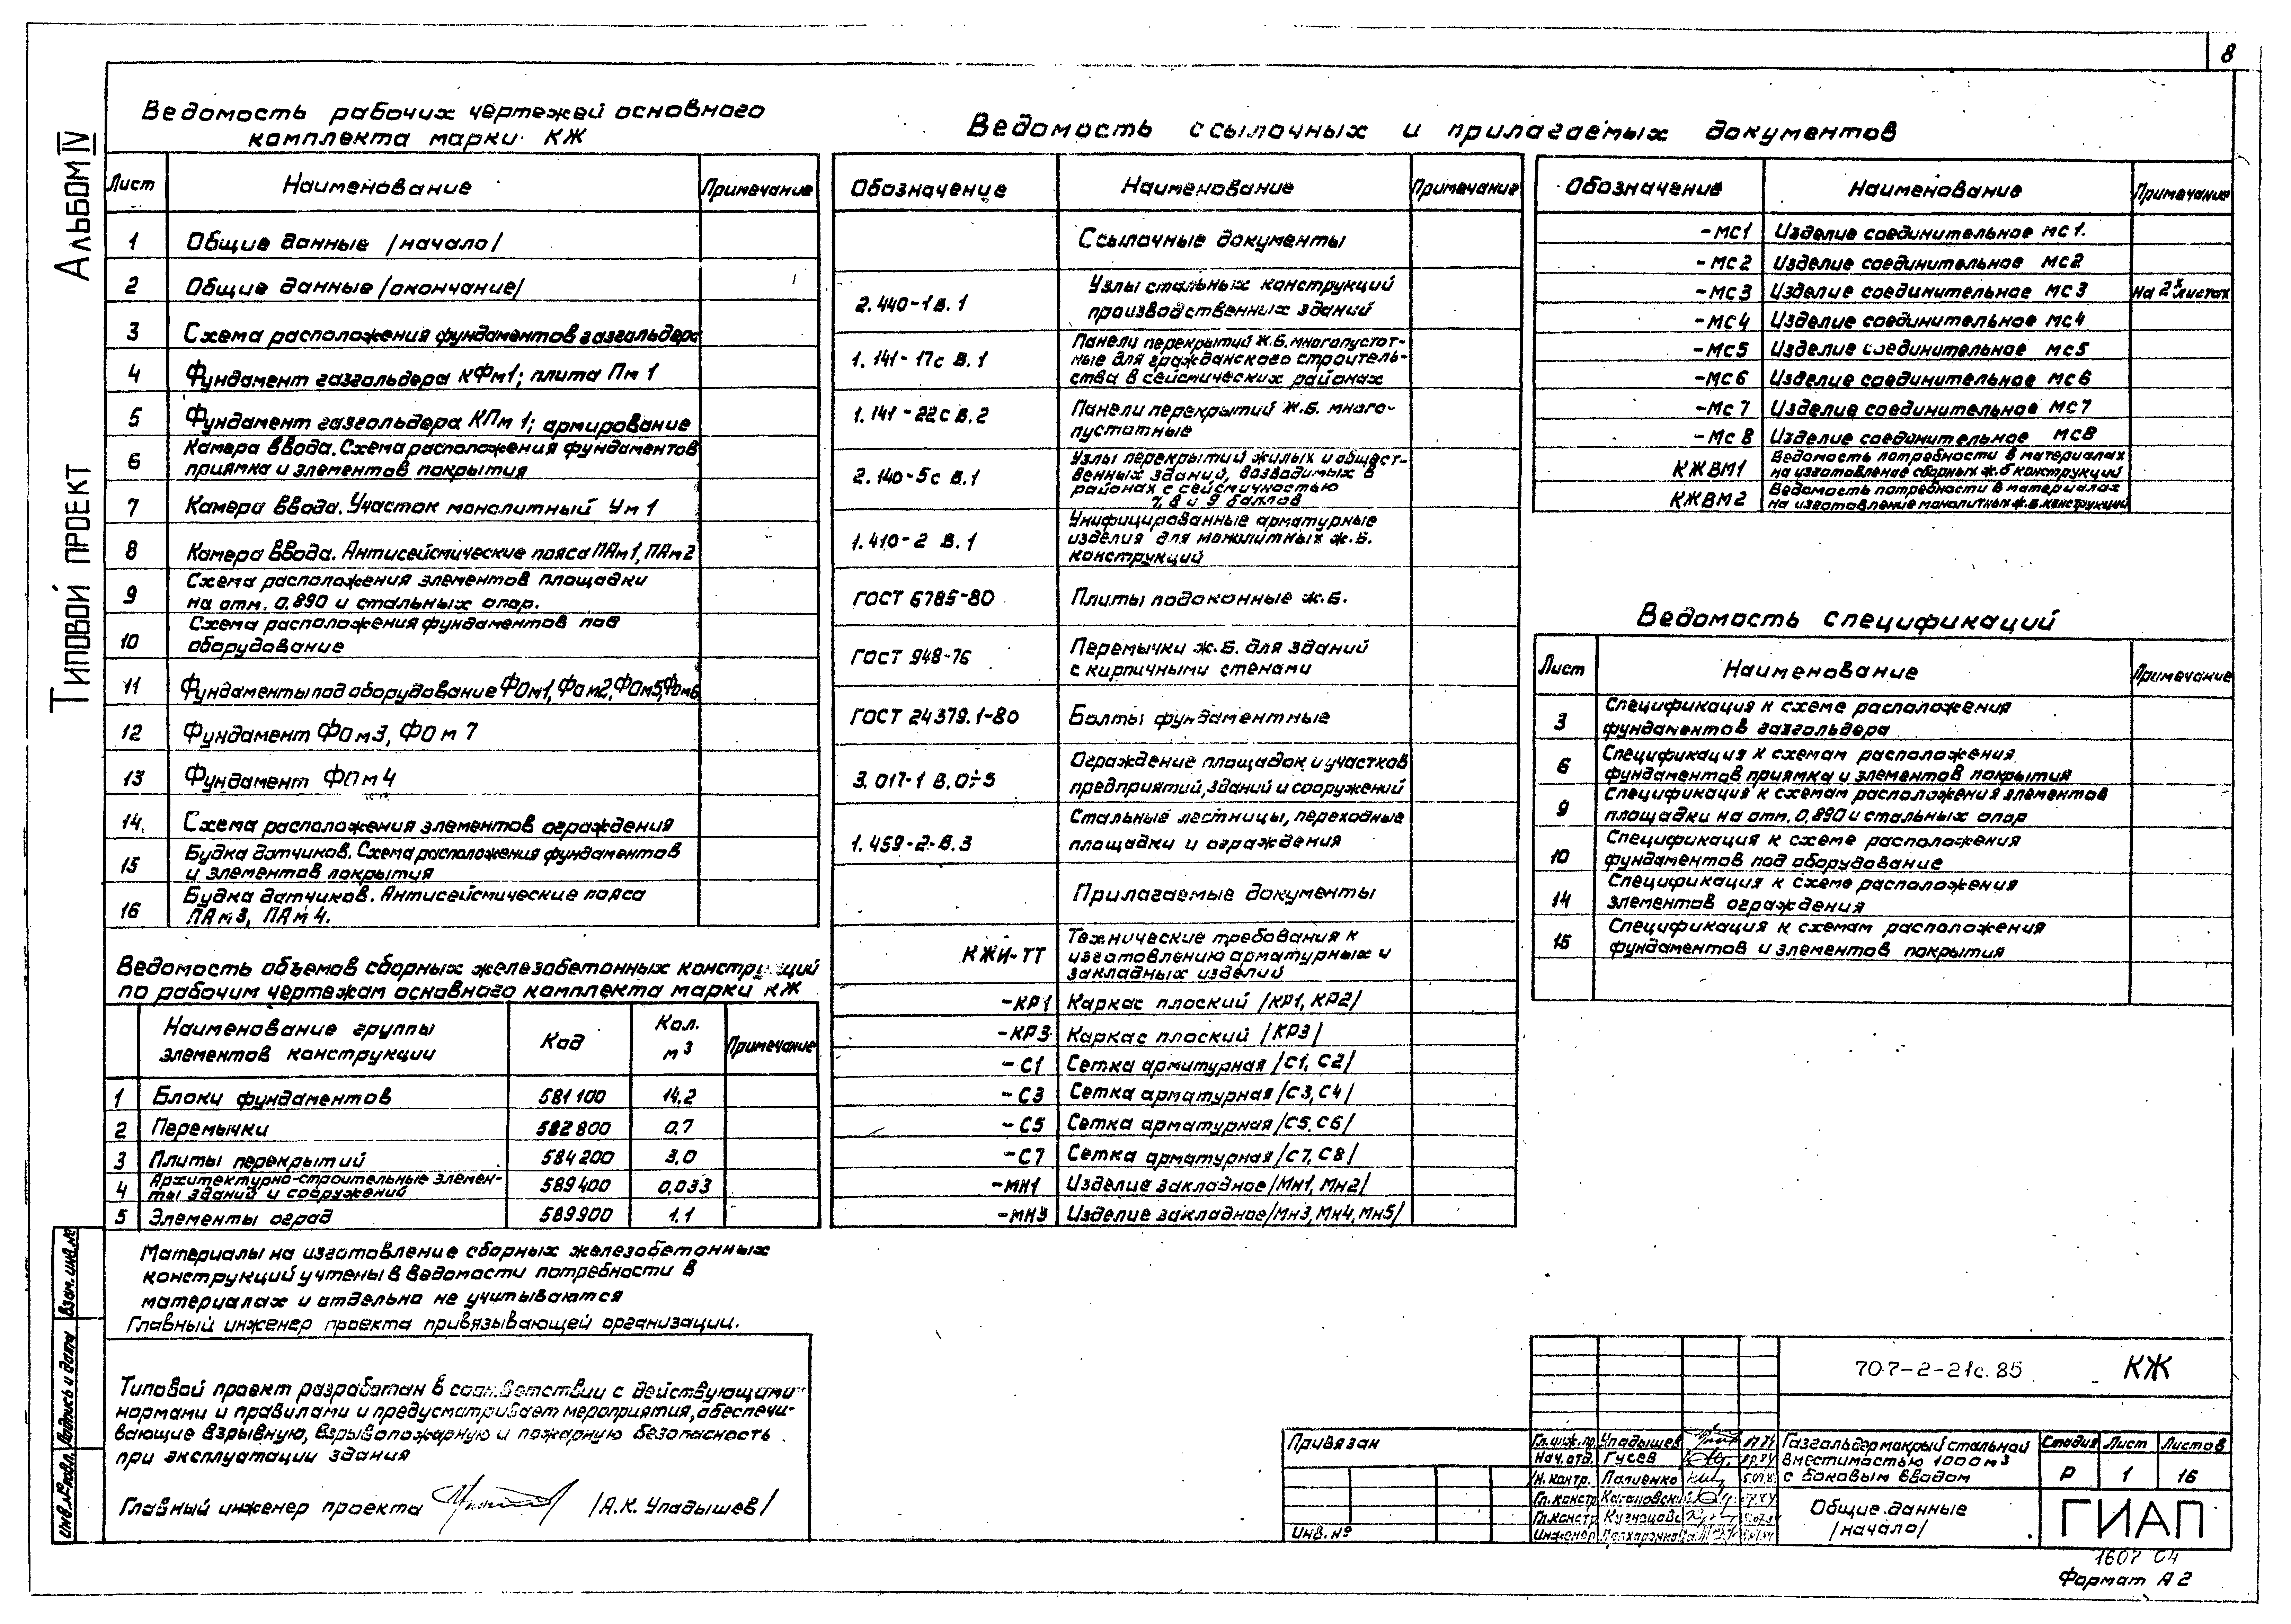 8
Альбом IV
Типовой проект
Ведомость рабочих чертежей основного
комплекта марки КЖ
Лист Наименование Примечание
1 Общие данные /начало/
2 Общие данные /окончание/
3 Схема расположения фундаментов газгольдера
4 Фундамент газгольдера КФм1; плита Пм 1
5 Фундамент газгольдера КПм 1; армирование
6 Камера ввода. Схема расположения фундаментов
приямка и элементов покрытия
7 Камера ввода. Участок монолитный Ум 1
8 Камера ввода. Антисейсмические пояса ПАм1, ПАм2
9 Схема расположения элементов площадки
на отм. 0,890 и стальных опор.
10 Схема расположения фундаментов под
оборудование
11 Фундаменты под оборудование ФОм1, ФОм2, ФОм5, ФОм6
12 Фундамент ФОм3, ФОм 7
13 Фундамент ФПм4
14. Схема расположения элементов ограждения
15 Будка датчиков. Схема расположения фундаментов
и элементов покрытия
16 Будка датчиков. Антисейсмические пояса
ПАм3, ПАм4.
Ведомость объемов сборных железобетонных конструкций
по рабочим чертежам основного комплекта марки КЖ
Наименование группы
элементов конструкции
Код
Кол.
м3
Примечание
1 Блоки фундаментов 581100 14.2
2 Перемычки 582800 0,7
3 Плиты перекрытий 584200 3,0
4 Архитектурно-строительные элемен-
ты зданий и сооружений 589400 0,033
5 Элементы оград 589900 1.1
Материалы на изготовление сборных железобетонных
конструкций учтены в ведомости потребности в
материалах и отдельно не учитываются
Главный инженер проекта привязывающей организации.
Типовой проект разработан в соответствии с действующими
нормами и правилами и предусматривает мероприятия, обеспечи-
вающие взрывную, взрывопожарную и пожарную безопасность
при эксплуатации здания
Главный инженер проекта /А.К. Упадышев/
Ведомость ссылочных и прилагаемых документов
Обозначение Наименование Примечание
Ссылочные документы
2.440-1 в.1 Узлы стальных конструкций
производственных зданий
1.141-17с в.1 Панели перекрытий ж.б. многопустот-
ные для гражданского строитель-
ства в сейсмических районах
1.141-22с в.2 Панели перекрытий ж.б. много-
пустотные
2.140-5с в.1 Узлы перекрытий жилых и общест-
венных зданий, возводимых в
районах с сейсмичностью
7, 8 и 9 баллов
1.410-2 в.1 Унифицированные арматурные
изделия для монолитных ж.б.
конструкций
ГОСТ 6785-80 Плиты подоконные ж.б.
ГОСТ 948-76 Перемычки ж.б. для зданий
с кирпичными стенами
ГОСТ 24379.1-80 Болты фундаментные
3.017-1 В.0÷5 Ограждение площадок и участков
предприятий, зданий и сооружений
1.459-2-В.3 Стальные лестницы, переходные
площадки и ограждения
Прилагаемые документы
КЖИ-ТТ Технические требования к
изготовлению арматурных и
закладных изделий
-КР1 Каркас плоский /КР1, КР2/
-КР3 Каркас плоский /КР3/
-С1 Сетка арматурная /С1, С2/
-С3 Сетка арматурная /С3, С4/
-С5 Сетка арматурная /С5, С6/
-С7 Сетка арматурная /С7, С8/
-МН1 Изделие закладное /Мн1, Мн2/
-МН3 Изделие закладное /Мн3, Мн4, Мн5/
Обозначение Наименование Примечание
-МС1 Изделие соединительное МС1.
-МС2 Изделие соединительное МС2
-МС3 Изделие соединительное МС3 на 2х листах
-МС4 Изделие соединительное МС4
-МС5 Изделие соединительное МС5
-МС6 Изделие соединительное МС6
-МС7 Изделие соединительное МС7
-МС8 Изделие соединительное МС8
КЖВМ1 Ведомость потребности в материалах
на изготовление сборных ж.б конструкций
КЖВМ2 Ведомость потребности в материалах
на изготовление монолитных ж.б. конструкций
Ведомость спецификаций
Лист Наименование Примечание
3 Спецификация к схеме расположения
фундаментов газгольдера
6 Спецификация к схемам расположения
фундаментов приямка и элементов покрытия
9 Спецификация к схемам расположения элементов
площадки на отм. 0,890 и стальных опор
10 Спецификация к схеме расположения
фундаментов под оборудование
14 Спецификация к схеме расположения
элементов ограждения
15 Спецификация к схемам расположения
фундаментов и элементов покрытия
Инв.№ подл. Подпись и дата Взам. инв. №
Привязан
Инв. №
707-2-21с.85 КЖ
Гл. инж. пр. Упадышев
Нач. отд. Гусев
Н. контр. Палиенко
Гл. констр. Кагановский
Гл. констр. Кузнецова
Инженер
Газгольдер мокрый стальной
вместимостью 1000 м3
с боковым вводом
Стадия Лист Листов
Р 1 16
Общие данные
/начало/
ГИАП
1607 04
Формат А2